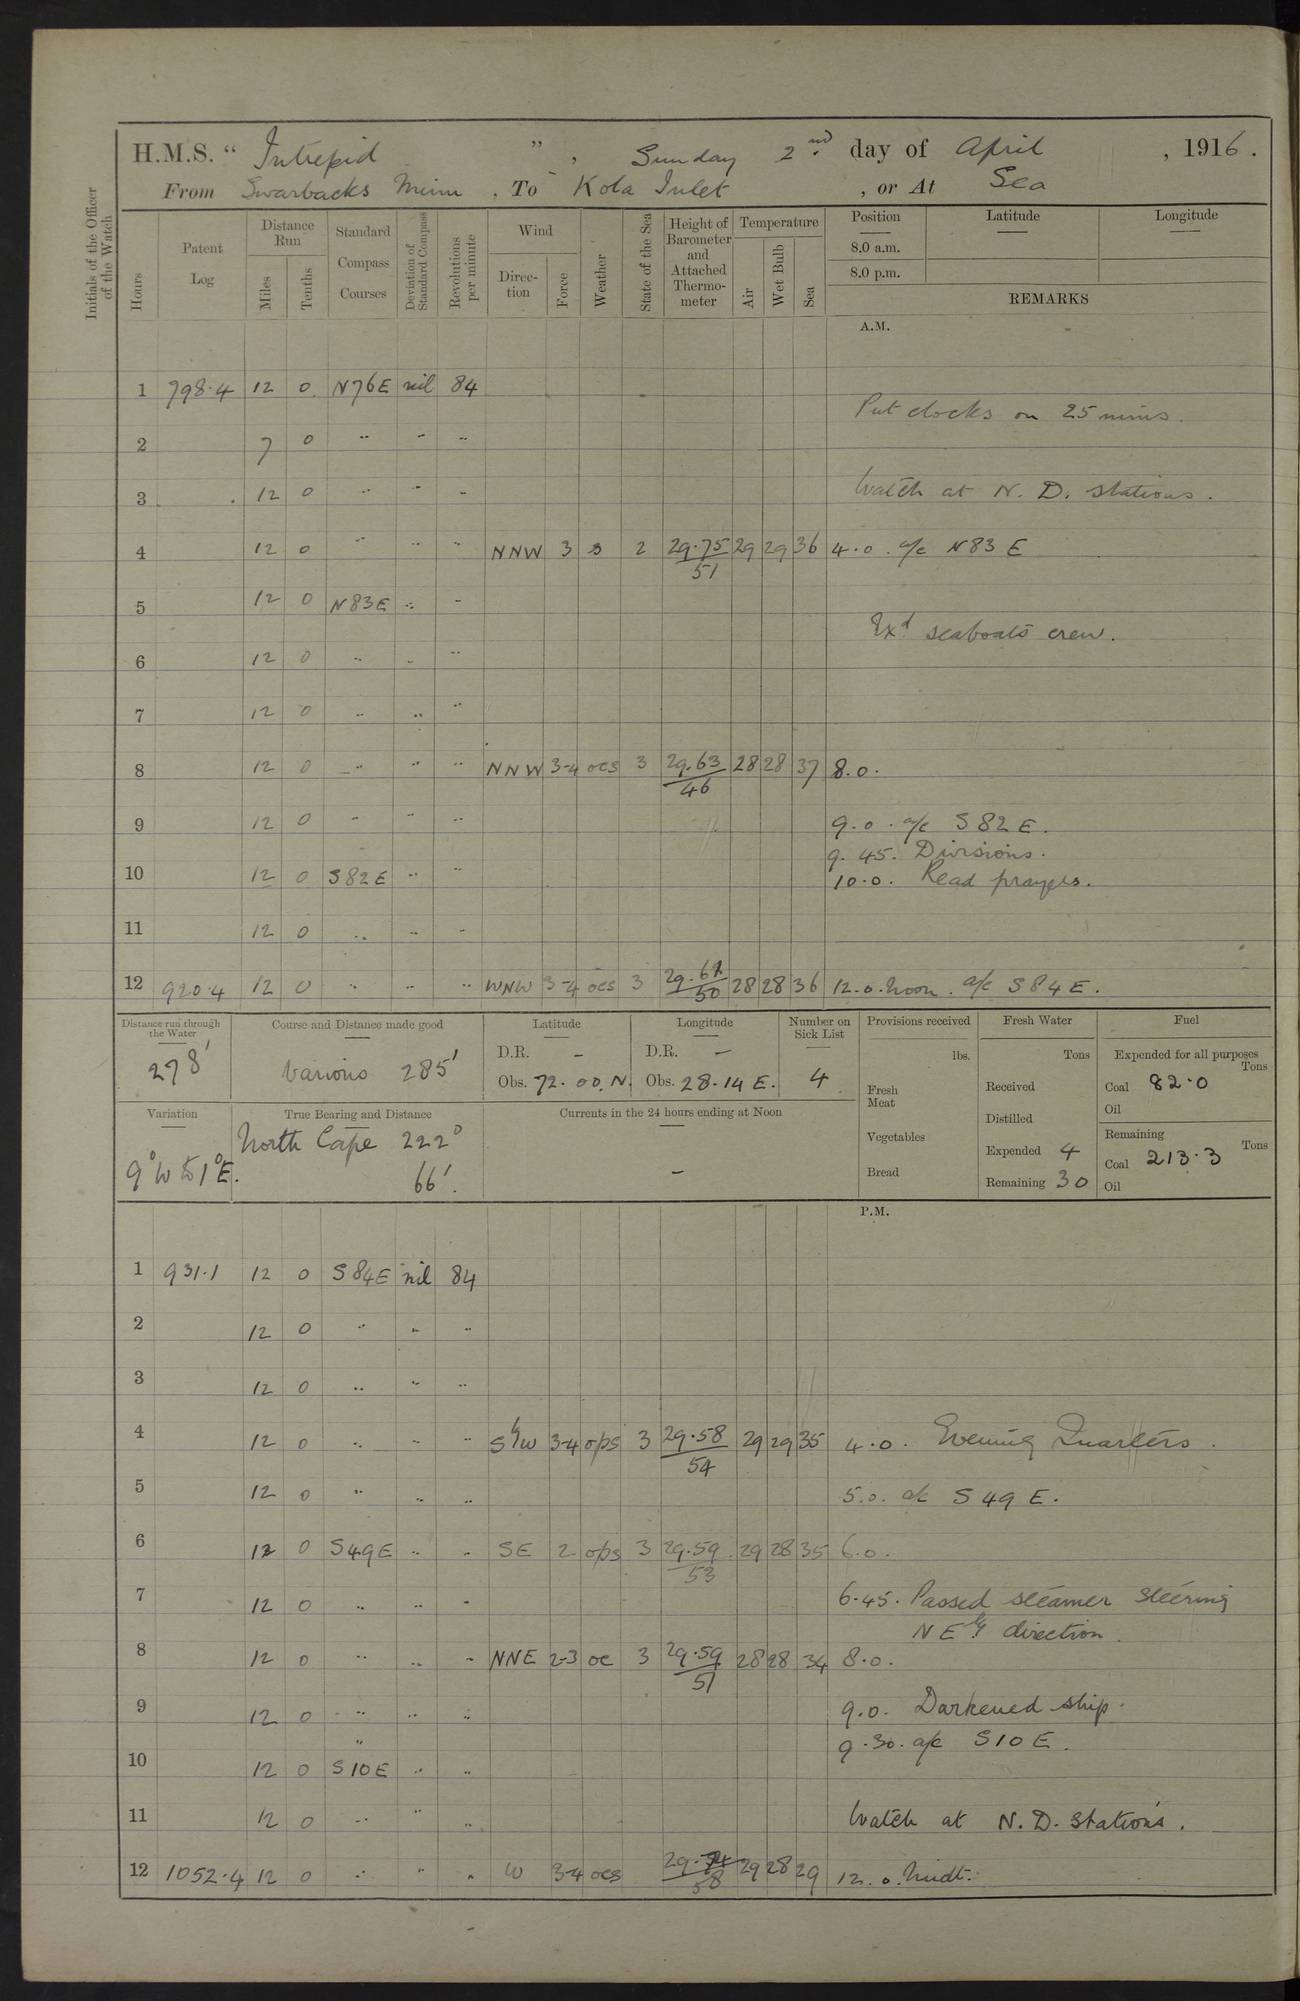 H.M.S. " Intrepid ", Sunday 2nd day of April, 1916.
From Swarbacks Minn, To Kola Inlet, or At Sea
Initials of the Officer of the Watch
Hours Patent Log Distance Run Miles Tenths Standard Compass Courses Deviation of Standard Compass Revolutions per minute Wind Direction Force Weather State of the Sea Height of Barometer and Attached Thermometer Temperature Air Wet Bulb Sea Position Latitude Longitude
8.0 a.m.
8.0 p.m.
REMARKS
A.M.
1 798.4 12 0 N76E nil 84
Put clocks on 25 mins.
2 7 0 " " "
3 12 0 " " " Watch at N. D. stations.
4 12 0 " " " NNW 3 s 2 29.75 29 29 36 4.0. a/c N83E
51
5 12 0 N83E " "
Exd seaboats crew.
6 12 0 " " "
7 12 0 " " "
8 12 0 " " " NNW 3-4 ocs 3 29.63 28 28 37 8.0.
46
9 12 0 " " " 9.0. a/c S82E.
9.45. Divisions.
10 12 0 S82E " " 10.0. Read prayers.
11 12 0 " " "
12 920.4 12 0 " " " WNW 3-4 ocs 3 29.61 28 28 36 12.0. Noon. a/c S84E.
50
Distance run through the Water Course and Distance made good Latitude Longitude Number on Sick List Provisions received Fresh Water Fuel
278' Various 285' D.R. - D.R. - 4 lbs. Tons Expended for all purposes Tons
Obs. 72.00.N. Obs. 28.14 E. Fresh Meat Received Coal 82.0
Oil
Variation True Bearing and Distance Currents in the 24 hours ending at Noon Distilled
9°W to 1°E. North Cape 222° - Vegetables Expended 4 Remaining Tons
66'. Bread Remaining 30 Coal 213.3
Oil
P.M.
1 931.1 12 0 S84E nil 84
2 12 0 " " "
3 12 0 " " "
4 12 0 " " " SbyW 3-4 ops 3 29.58 29 29 35 4.0. Evening Quarters.
54
5 12 0 " " " 5.0. a/c S49E.
6 12 0 S49E " " SE 2 ops 3 29.59 29 28 35 6.0.
53
7 12 0 " " " 6.45. Passed steamer steering
NEly direction.
8 12 0 " " " NNE 2-3 oc 3 29.59 28 28 34 8.0.
51
9 12 0 " " " 9.0. Darkened ship.
" 9.30. a/c S10E.
10 12 0 S10E " "
11 12 0 " " " Watch at N.D. stations.
12 1052.4 12 0 " " " W 3-4 ocs 29.74 29 28 29 12.0. Midt.
58